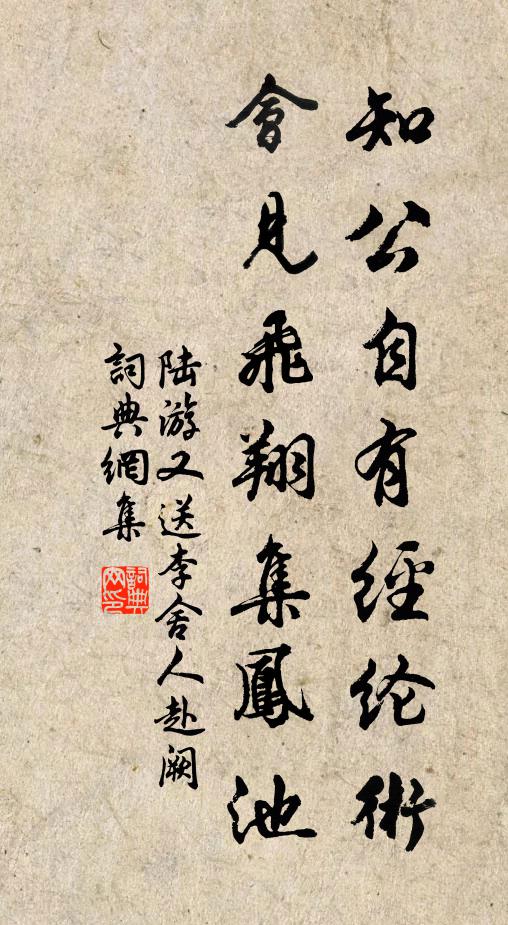 知公自有經纶術
會見飛翔集鳳池
陆游又送李舍人赴阙
詞典網集
詞典
网印